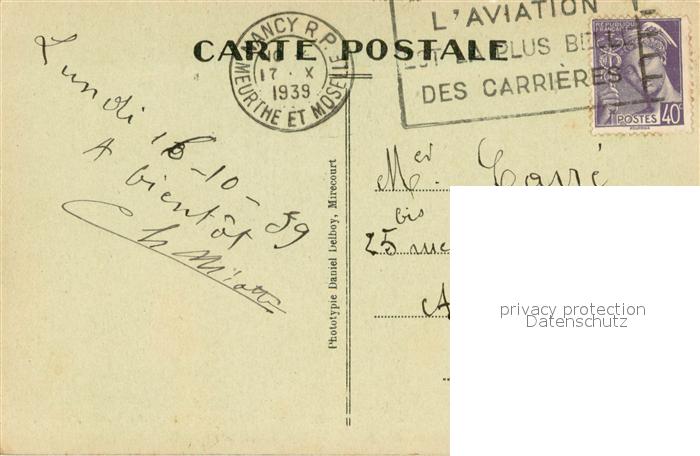 CARTE POSTALE
NANCY R.P.
17 · X
1939
MEURTHE ET MOSELLE
L'AVIATION
EST LA PLUS BELLE
DES CARRIÈRES
RÉPUBLIQUE
FRANÇAISE
POSTES 40c
Lundi 16-10-39
A bientôt
Ch
Phototypie Daniel Delboy, Mirecourt
Mer.
bis
25 rue
A
privacy protection
Datenschutz